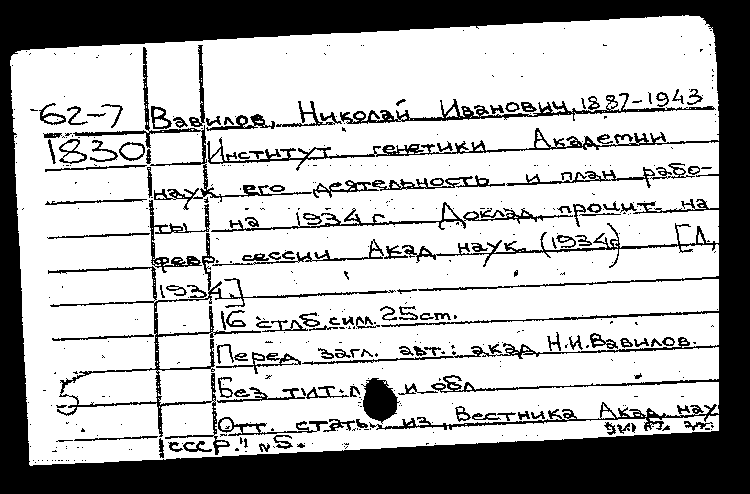 62-7 Вавилов, Николай Иванович, 1887-1943
1830 Институт генетики Академии
наук, его деятельность и план рабо-
ты на 1934 г. Доклад, прочит. на
февр. сессии Акад. наук. (1934г) [Л.,
1934.]
16 стлб. сим. 25 ст.
Перед загл. авт.: акад. Н.И. Вавилов.
5 Без тит. л и обл
Отт. статьи из „Вестника Акад. наук
СССР." №5.